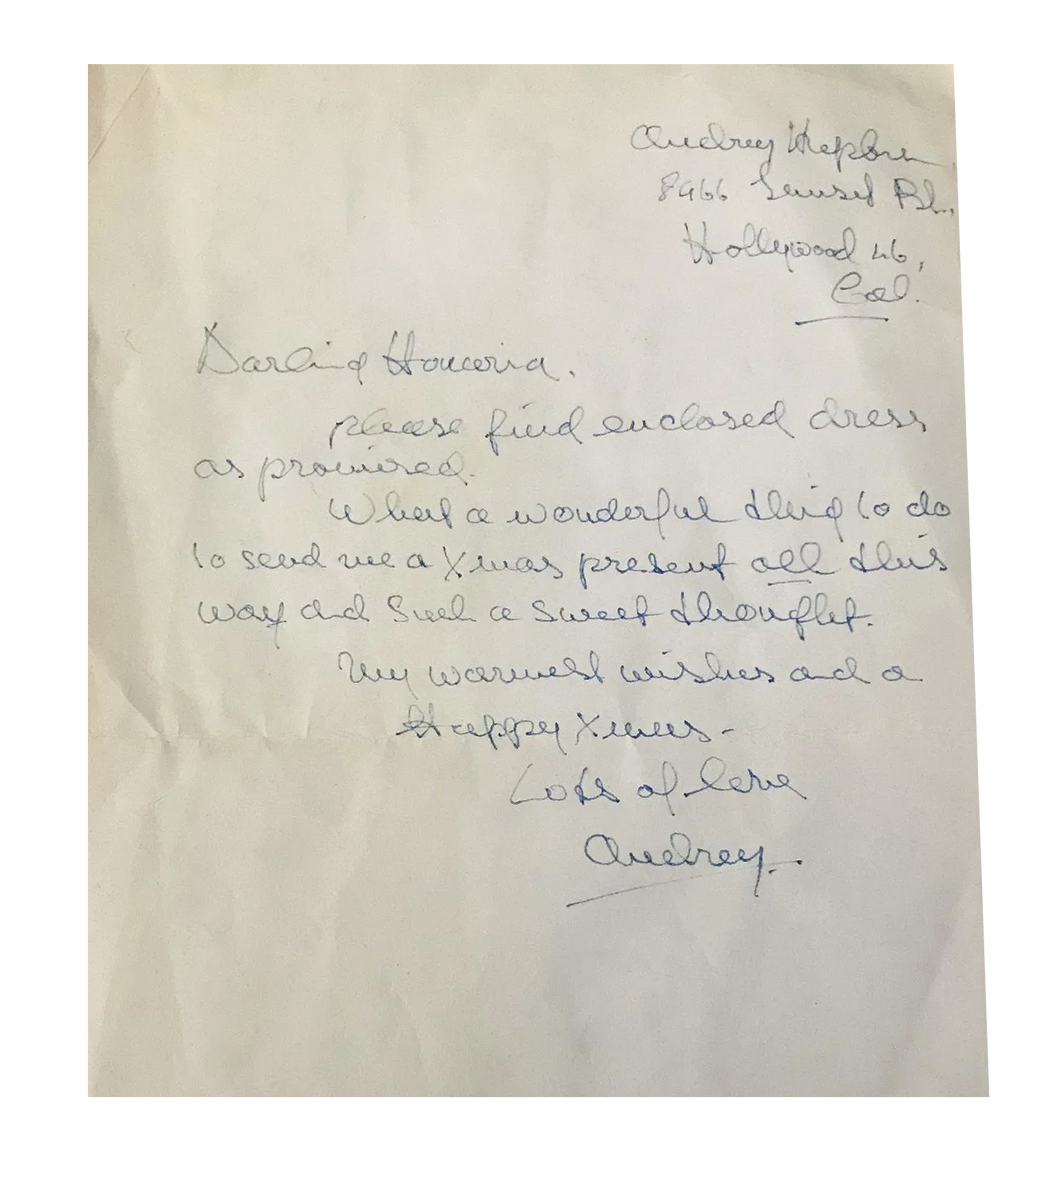 Audrey Hepburn,
8966 Sunset Bl.,
Hollywood 46,
Cal.
Darling Houceria.
please find enclosed dress
as promised.
What a wonderful thing to do
to send me a Xmas present all this
way and such a sweet thought.
My warmest wishes and a
Happy Xmas -
Lots of love
Audrey.